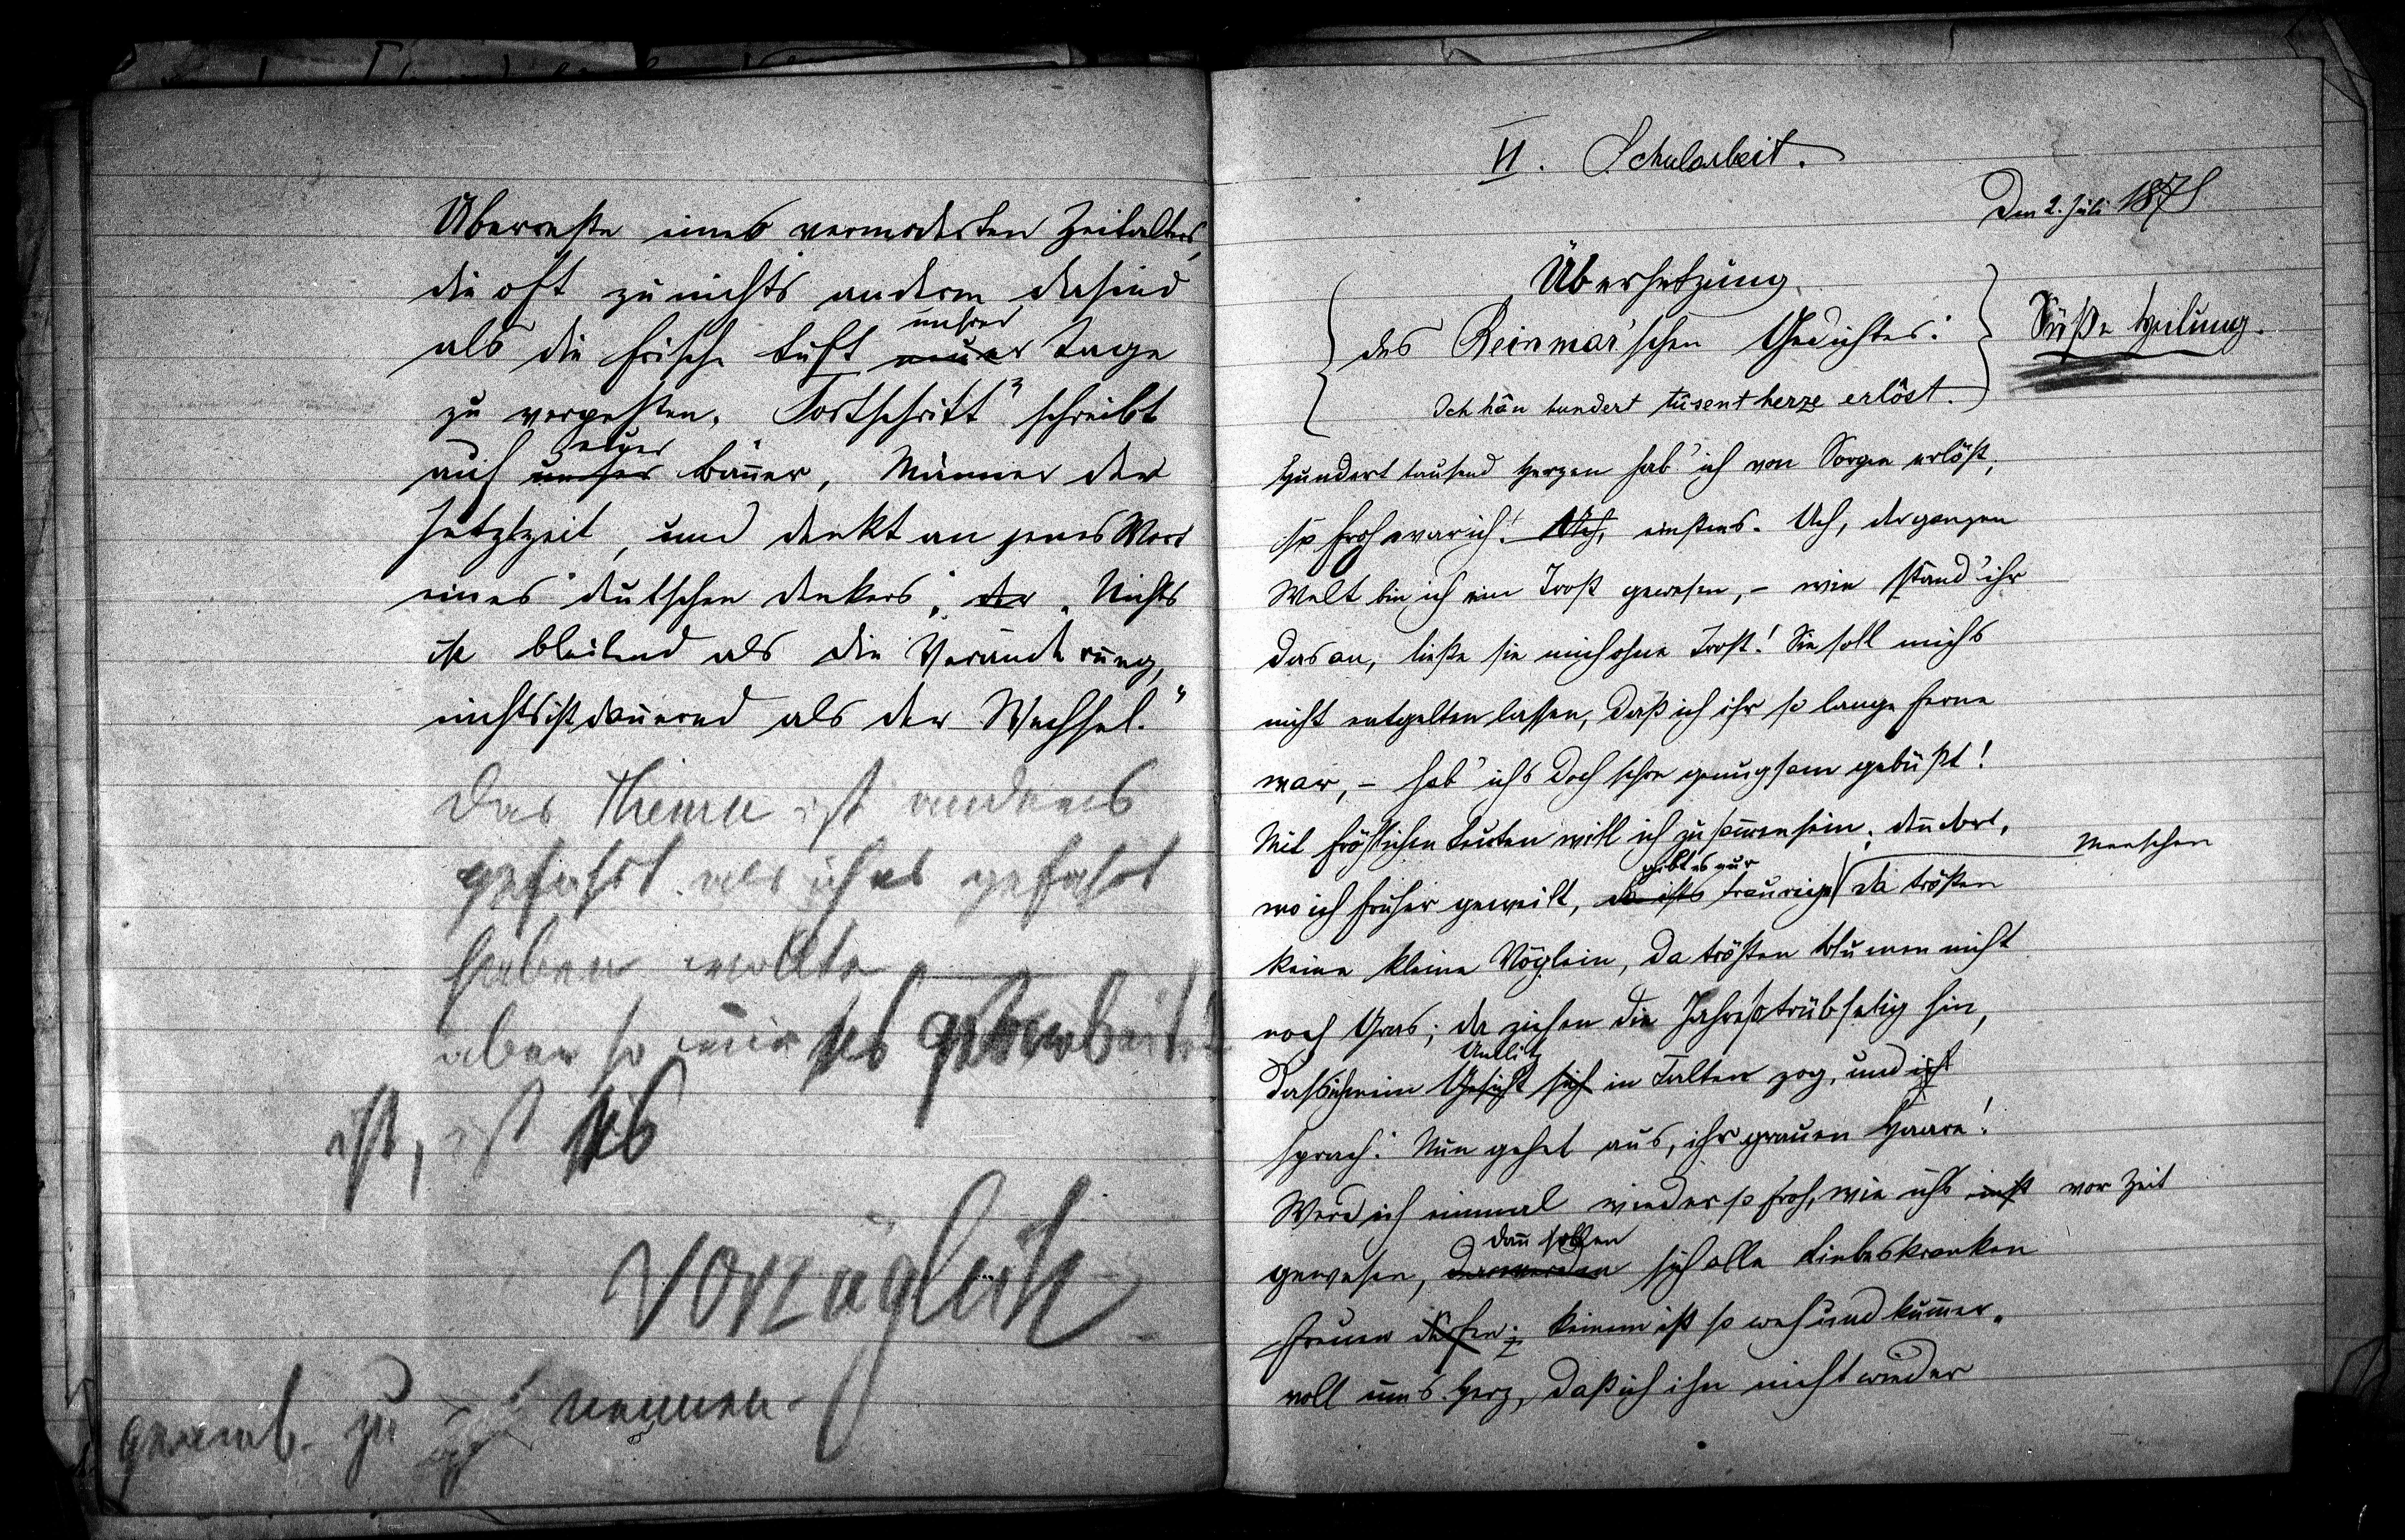 Überreste eines vermoderten Zeitalters,
die oft zu nichts anderm dasind
unsrer
als die frische Luft neuer Tage
zu verpesten. „Fortschritt" schreibt
euer
auf unser Banner, Männer der
Jetztzeit, und denkt an jenes Wort
eines deutschen Denkers: der „Nichts
ist bleibend als die Veränderung,
nichts ist dauernd als der Wechsel."
Das Thema ist anders
gefasst als ich es gefasst
haben wollte
aber so wie es gearbeitet
ist, ist es
vorzüglich
zu nennen.
II. Schularbeit.
Den 2. Juli
Übersetzung
des Reinmar'schen Gedichtes:
Ich hân hundert tûsent herze erlôst.
Süße Heilung.
Hundert tausend Herzen hab' ich von Sorgen erlöst,
so froh war ich! Ach, einstens. Ach, der ganzen
Welt bin ich ein Trost gewesen, – wie stand' ihr
das an, ließe sie mich ohne Trost! Sie soll michs
nicht entgelten lassen, daß ich ihr so lange ferne
war, – hab' ichs doch schon genugsam gebüßt!
Mit fröhlichen Leuten will ich zusammen sein, denn dort,
Menschen
gibt es nur
wo ich früher geweilt, da ists traurig da trösten
keine kleine Vöglein, da trösten Blumen nicht
noch Gras; da ziehen die Jahre so trübselig hin,
Antlitz
dass ich mein Gesicht sich in Falten zog, und ich
sprach: Nun gehet aus, ihr grauen Haare!
Werd ich einmal wieder so froh, wie ichs einst
vor Zeit
dann sollen
gewesen, dann werden sich alle Liebeskranken
freuen dürfen; keinem ist so weh und kummer-
voll ums Herz, daß ich ihn nicht wieder